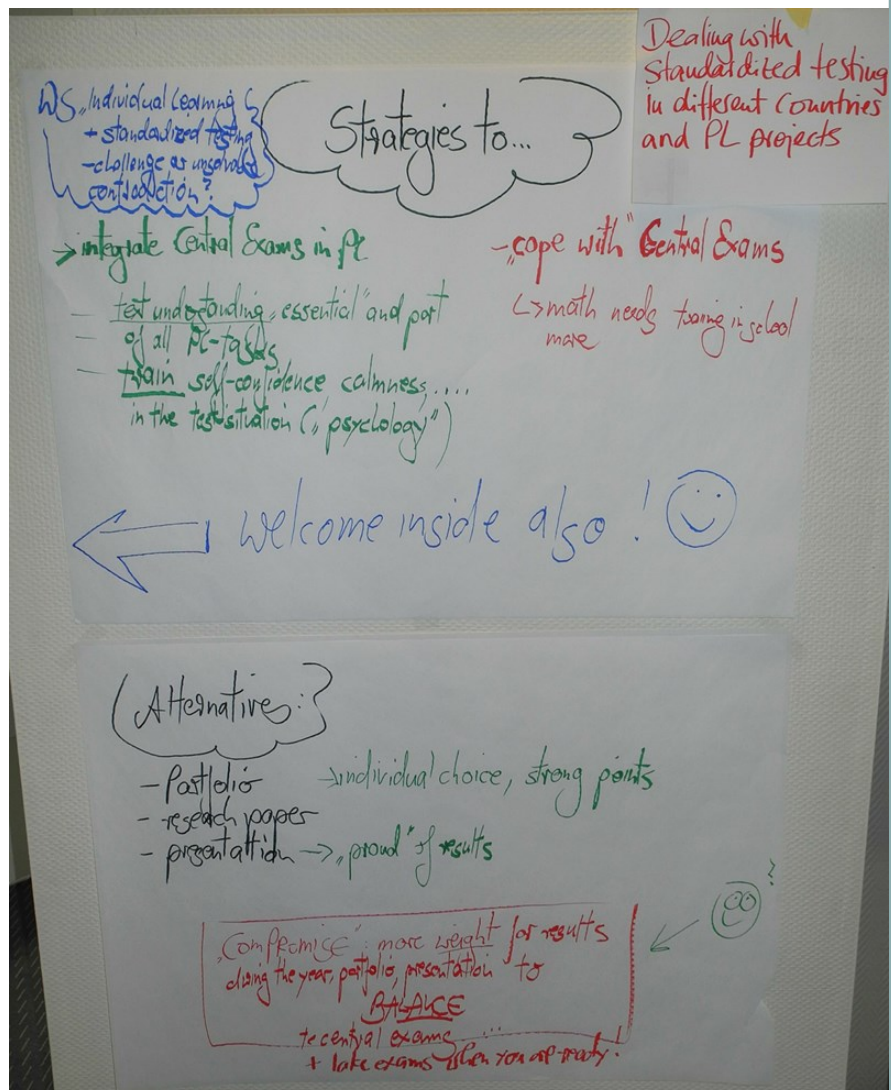 Dealing with
standardized testing
in different countries
and PL projects
WS „Individual Learning
+ standardized testing
- challenge or unsolvable
contradiction?
Strategies to...
→ integrate Central Exams in PL
- text understanding „essential" and part
of all PL-tasks
- train self-confidence, calmness, ....
in the test situation („psychology")
- „cope with" Central Exams
↳ math needs training in school
more
welcome inside also !
Alternatives:
- Portfolio → individual choice, strong points
- research paper
- presentattion → „proud" of results
„Compromise": more weight for results
during the year, portfolio, presentation to
BALANCE
te central exams ...
+ take exams when you are ready.
?